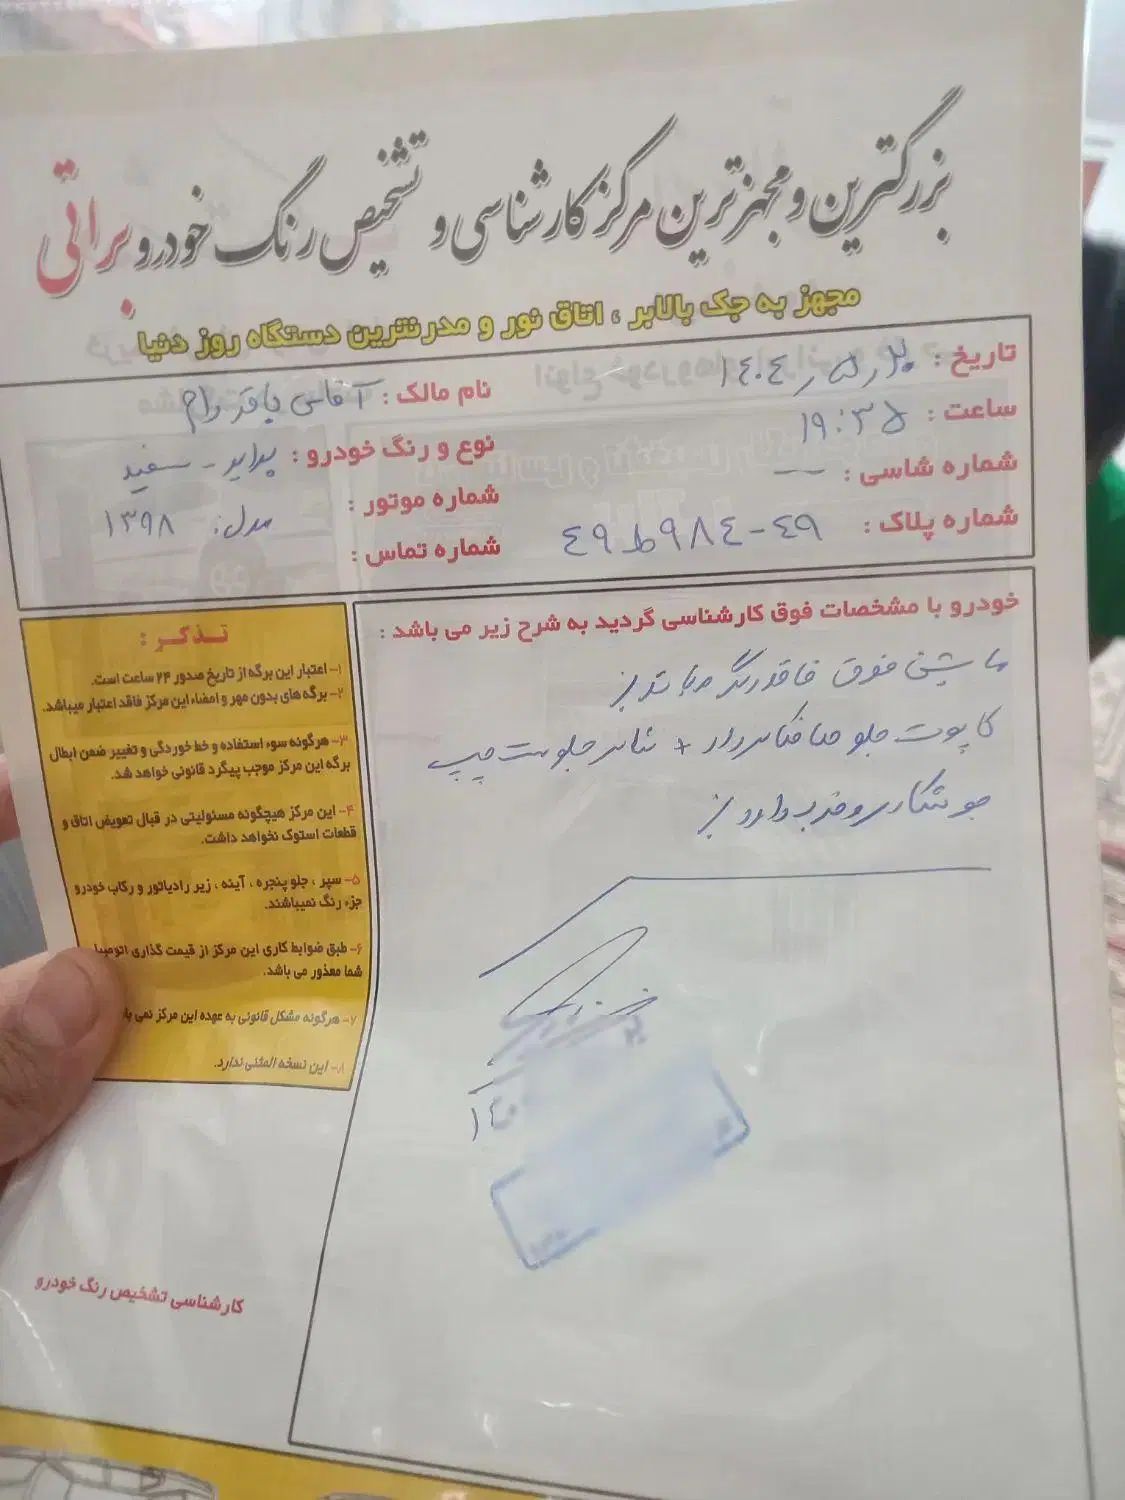 بزرگترین و مجهزترین مرکز کارشناسی و تشخیص رنگ خودرو براتی
مجهز به جک بالابر ، اتاق نور و مدرنترین دستگاه روز دنیا
تاریخ : ۱۴۰۴
ساعت : ۱۹:۳۵
شماره شاسی : —
شماره پلاک : ٤٩ط٩٨٤-٤٩
نام مالک : آقای باقر
نوع و رنگ خودرو : پراید - سفید
شماره موتور : مدل: ۱۳۹۸
شماره تماس :
خودرو با مشخصات فوق کارشناسی گردید به شرح زیر می باشد :
ماشین فوق فاقد رنگ میباشد
کاپوت جلو صافکاری دارد + شاسی جلو سمت چپ
جوشکاری و ضرب دارد
تذکر :
۱- اعتبار این برگه از تاریخ صدور ۲۴ ساعت است.
۲- برگه های بدون مهر و امضاء این مرکز فاقد اعتبار میباشد.
۳- هرگونه سوء استفاده و خط خوردگی و تغییر ضمن ابطال
برگه این مرکز موجب پیگرد قانونی خواهد شد.
۴- این مرکز هیچگونه مسئولیتی در قبال تعویض اتاق و
قطعات استوک نخواهد داشت.
۵- سپر ، جلو پنجره ، آینه ، زیر رادیاتور و رکاب خودرو
جزء رنگ نمیباشند.
۶- طبق ضوابط کاری این مرکز از قیمت گذاری اتومبیل
شما معذور می باشد.
۷- هرگونه مشکل قانونی به عهده این مرکز نمی با
۸- این نسخه المثنی ندارد.
کارشناسی تشخیص رنگ خودرو